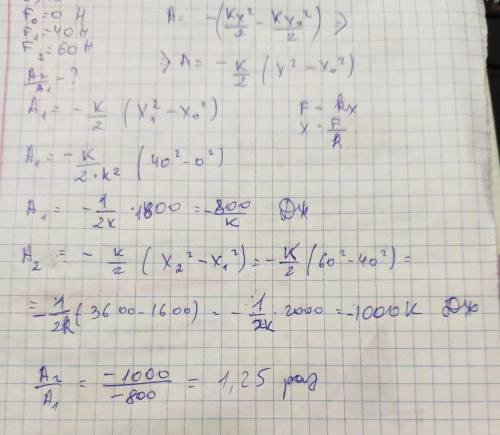 F₀=0 Н
F₁=40 Н
F₂=60 Н
A₂/A₁ - ?
A = -(Kx²/2 - Kx₀²/2) ⇒
⇒ A = - K/2 (x² - x₀²)
A₁ = - K/2 (x₁² - x₀²)
F = kx
x = F/k
A₁ = - K/2*k² (40² - 0²)
A₁ = - 1/2k · 1600 = -800/K Дж
A₂ = - K/2 (x₂² - x₁²) = - K/2 (60² - 40²) =
= - 1/2k (3600 - 1600) - - 1/2k · 2000 = -1000K Дж
A₂/A₁ = -1000/-800 = 1,25 раз